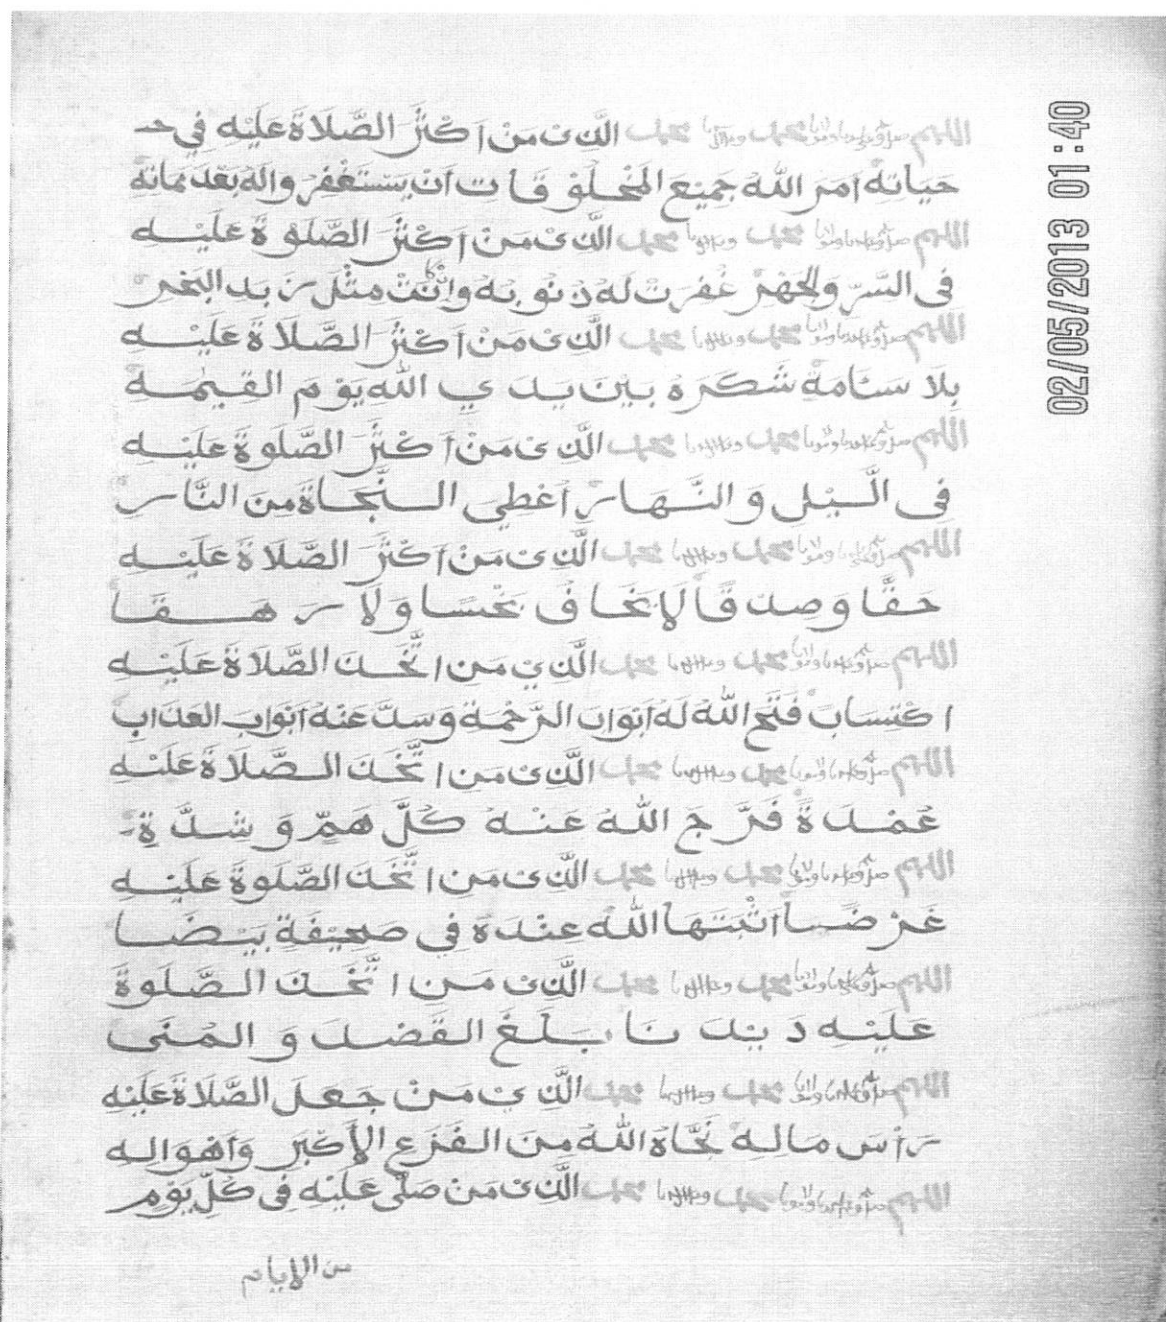 اللهم صل وسلم على سيدنا ومولانا محمد وعلى آل سيدنا محمد الَّذِى مَنْ اَكْثَرَ الصَّلَاةَ عَلَيْهِ فِي حـ
حَيَاتِهِ اَمَرَ اللهُ جَمِيعَ المَخْلُوْقَاتِ اَنْ يَسْتَغْفِرُوا لَهُ بَعْدَ مَمَاتِهِ
اللهم صل وسلم على سيدنا ومولانا محمد وعلى آل سيدنا محمد الَّذِى مَنْ اَكْثَرَ الصَّلَوةَ عَلَيْهِ
فِى السِّرِّ وَالجَهْرِ غُفِرَتْ لَهُ ذُنُوبُهُ وَاِنْ كَانَتْ مِثْلَ زَبَدِ البَحْرِ
اللهم صل وسلم على سيدنا ومولانا محمد وعلى آل سيدنا محمد الَّذِى مَنْ اَكْثَرَ الصَّلَاةَ عَلَيْهِ
بِلَا سَئَامَةٍ شَكَرَهُ بَيْنَ يَدَيِ اللهِ يَوْمَ القِيٰمَةِ
اللهم صل وسلم على سيدنا ومولانا محمد وعلى آل سيدنا محمد الَّذِى مَنْ اَكْثَرَ الصَّلَوةَ عَلَيْهِ
فِى الَّيْلِ وَالنَّهَارِ اُعْطِيَ النَّجَاةَ مِنَ النَّارِ
اللهم صل وسلم على سيدنا ومولانا محمد وعلى آل سيدنا محمد الَّذِى مَنْ اَكْثَرَ الصَّلَاةَ عَلَيْهِ
حَقًّا وَصِدْقًا لَا يَخَافُ بَخْسًا وَلَا رَهَقًا
اللهم صل وسلم على سيدنا ومولانا محمد وعلى آل سيدنا محمد الَّذِي مَنِ اتَّخَذَ الصَّلَاةَ عَلَيْهِ
اكْتِسَابَ فَتَحَ اللهُ لَهُ اَبْوَابَ الرَّحْمَةِ وَسَدَّ عَنْهُ اَبْوَابَ العَذَابِ
اللهم صل وسلم على سيدنا ومولانا محمد وعلى آل سيدنا محمد الَّذِى مَنِ اتَّخَذَ الصَّلَاةَ عَلَيْهِ
عُمْدَةً فَرَّجَ اللهُ عَنْهُ كُلَّ هَمٍّ وَشِدَّةٍ
اللهم صل وسلم على سيدنا ومولانا محمد وعلى آل سيدنا محمد الَّذِى مَنِ اتَّخَذَ الصَّلَوةَ عَلَيْهِ
غَرَضًا اَثْبَتَهَا اللهُ عِنْدَهُ فِي صَحِيفَةٍ بَيْضَا
اللهم صل وسلم على سيدنا ومولانا محمد وعلى آل سيدنا محمد الَّذِى مَنِ اتَّخَذَ الصَّلَوةَ
عَلَيْهِ دَيْدَنَا بَلَغَ القَصْدَ وَالمُنَى
اللهم صل وسلم على سيدنا ومولانا محمد وعلى آل سيدنا محمد الَّذِي مَنْ جَعَلَ الصَّلَاةَ عَلَيْهِ
رَأْسَ مَالِهِ نَجَّاهُ اللهُ مِنَ الفَزَعِ الاَكْبَرِ وَاَهْوَالِهِ
اللهم صل وسلم على سيدنا ومولانا محمد وعلى آل سيدنا محمد الَّذِى مَنْ صَلَّى عَلَيْهِ فِى كُلِّ يَوْمٍ
من الايام
02/05/2013 01:40